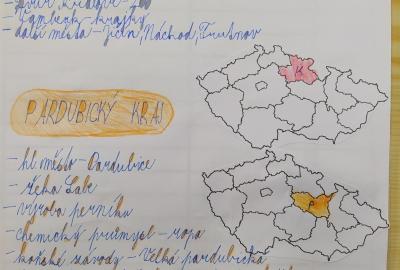 Dvůr Králové - zoo
- Žamberk - krajky
- další města - Jičín, Náchod, Trutnov
K
PARDUBICKÝ KRAJ
- hl. město - Pardubice
- řeka Labe
- výroba perníku
- chemický průmysl - ropa
- koňské závody - Velká pardubická
P